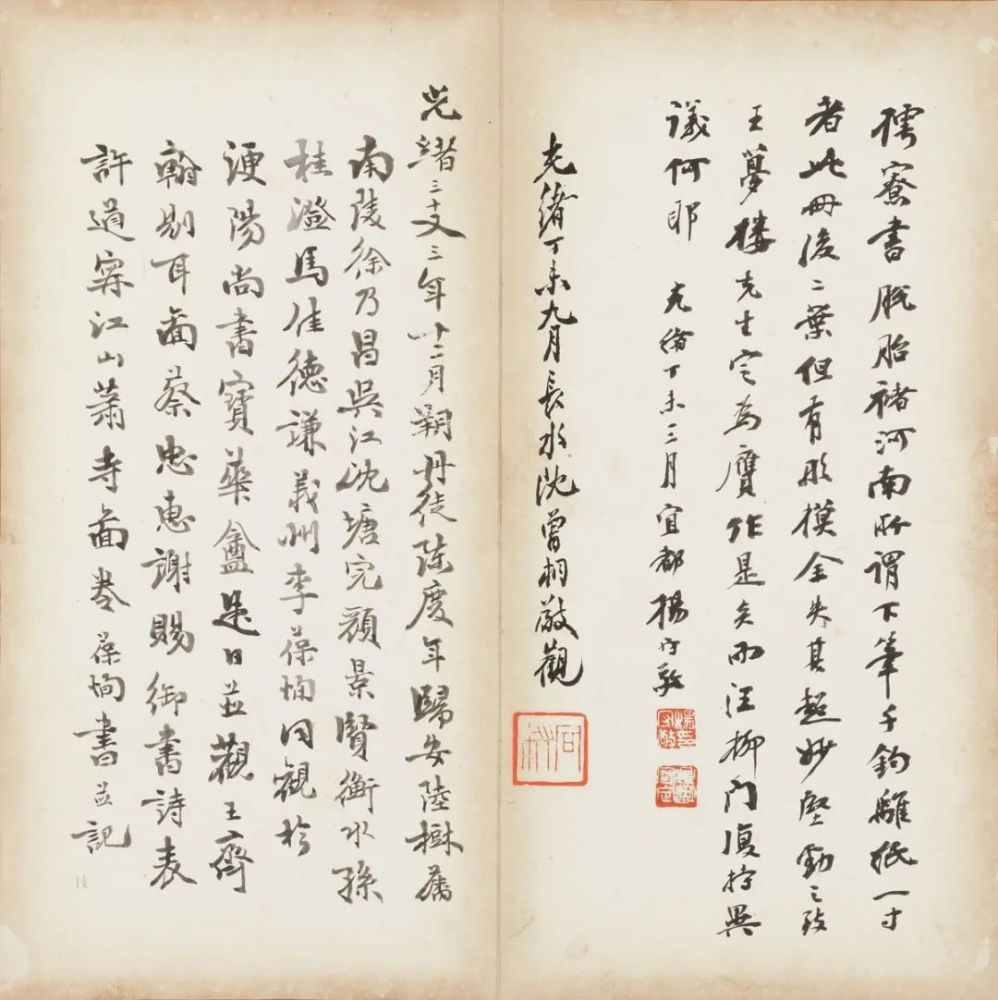 樗寮書脫胎褚河南所謂下筆千鈞離紙一寸
者此冊後二葉但有形模全失其超妙堅勁之致
王夢樓先生定為贋作是矣而汪柳門復持異
議何耶 光緒丁未三月宜都楊守敬
光緒丁未九月長水沈曾桐敬觀
光緒三十又三年十二月朔丹徒陳慶年歸安陸樹藩
南陵徐乃昌吳江沈塘完顏景賢衡水孫
桂澂馬佳德謙義州李葆恂同觀於
浭陽尚書寶華盦是日並觀王齊
翰剔耳圖蔡忠惠謝賜御書詩表
許道寧江山蕭寺圖卷葆恂書並記